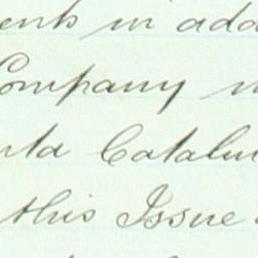 ents in add
Company
Catalu
this Issue